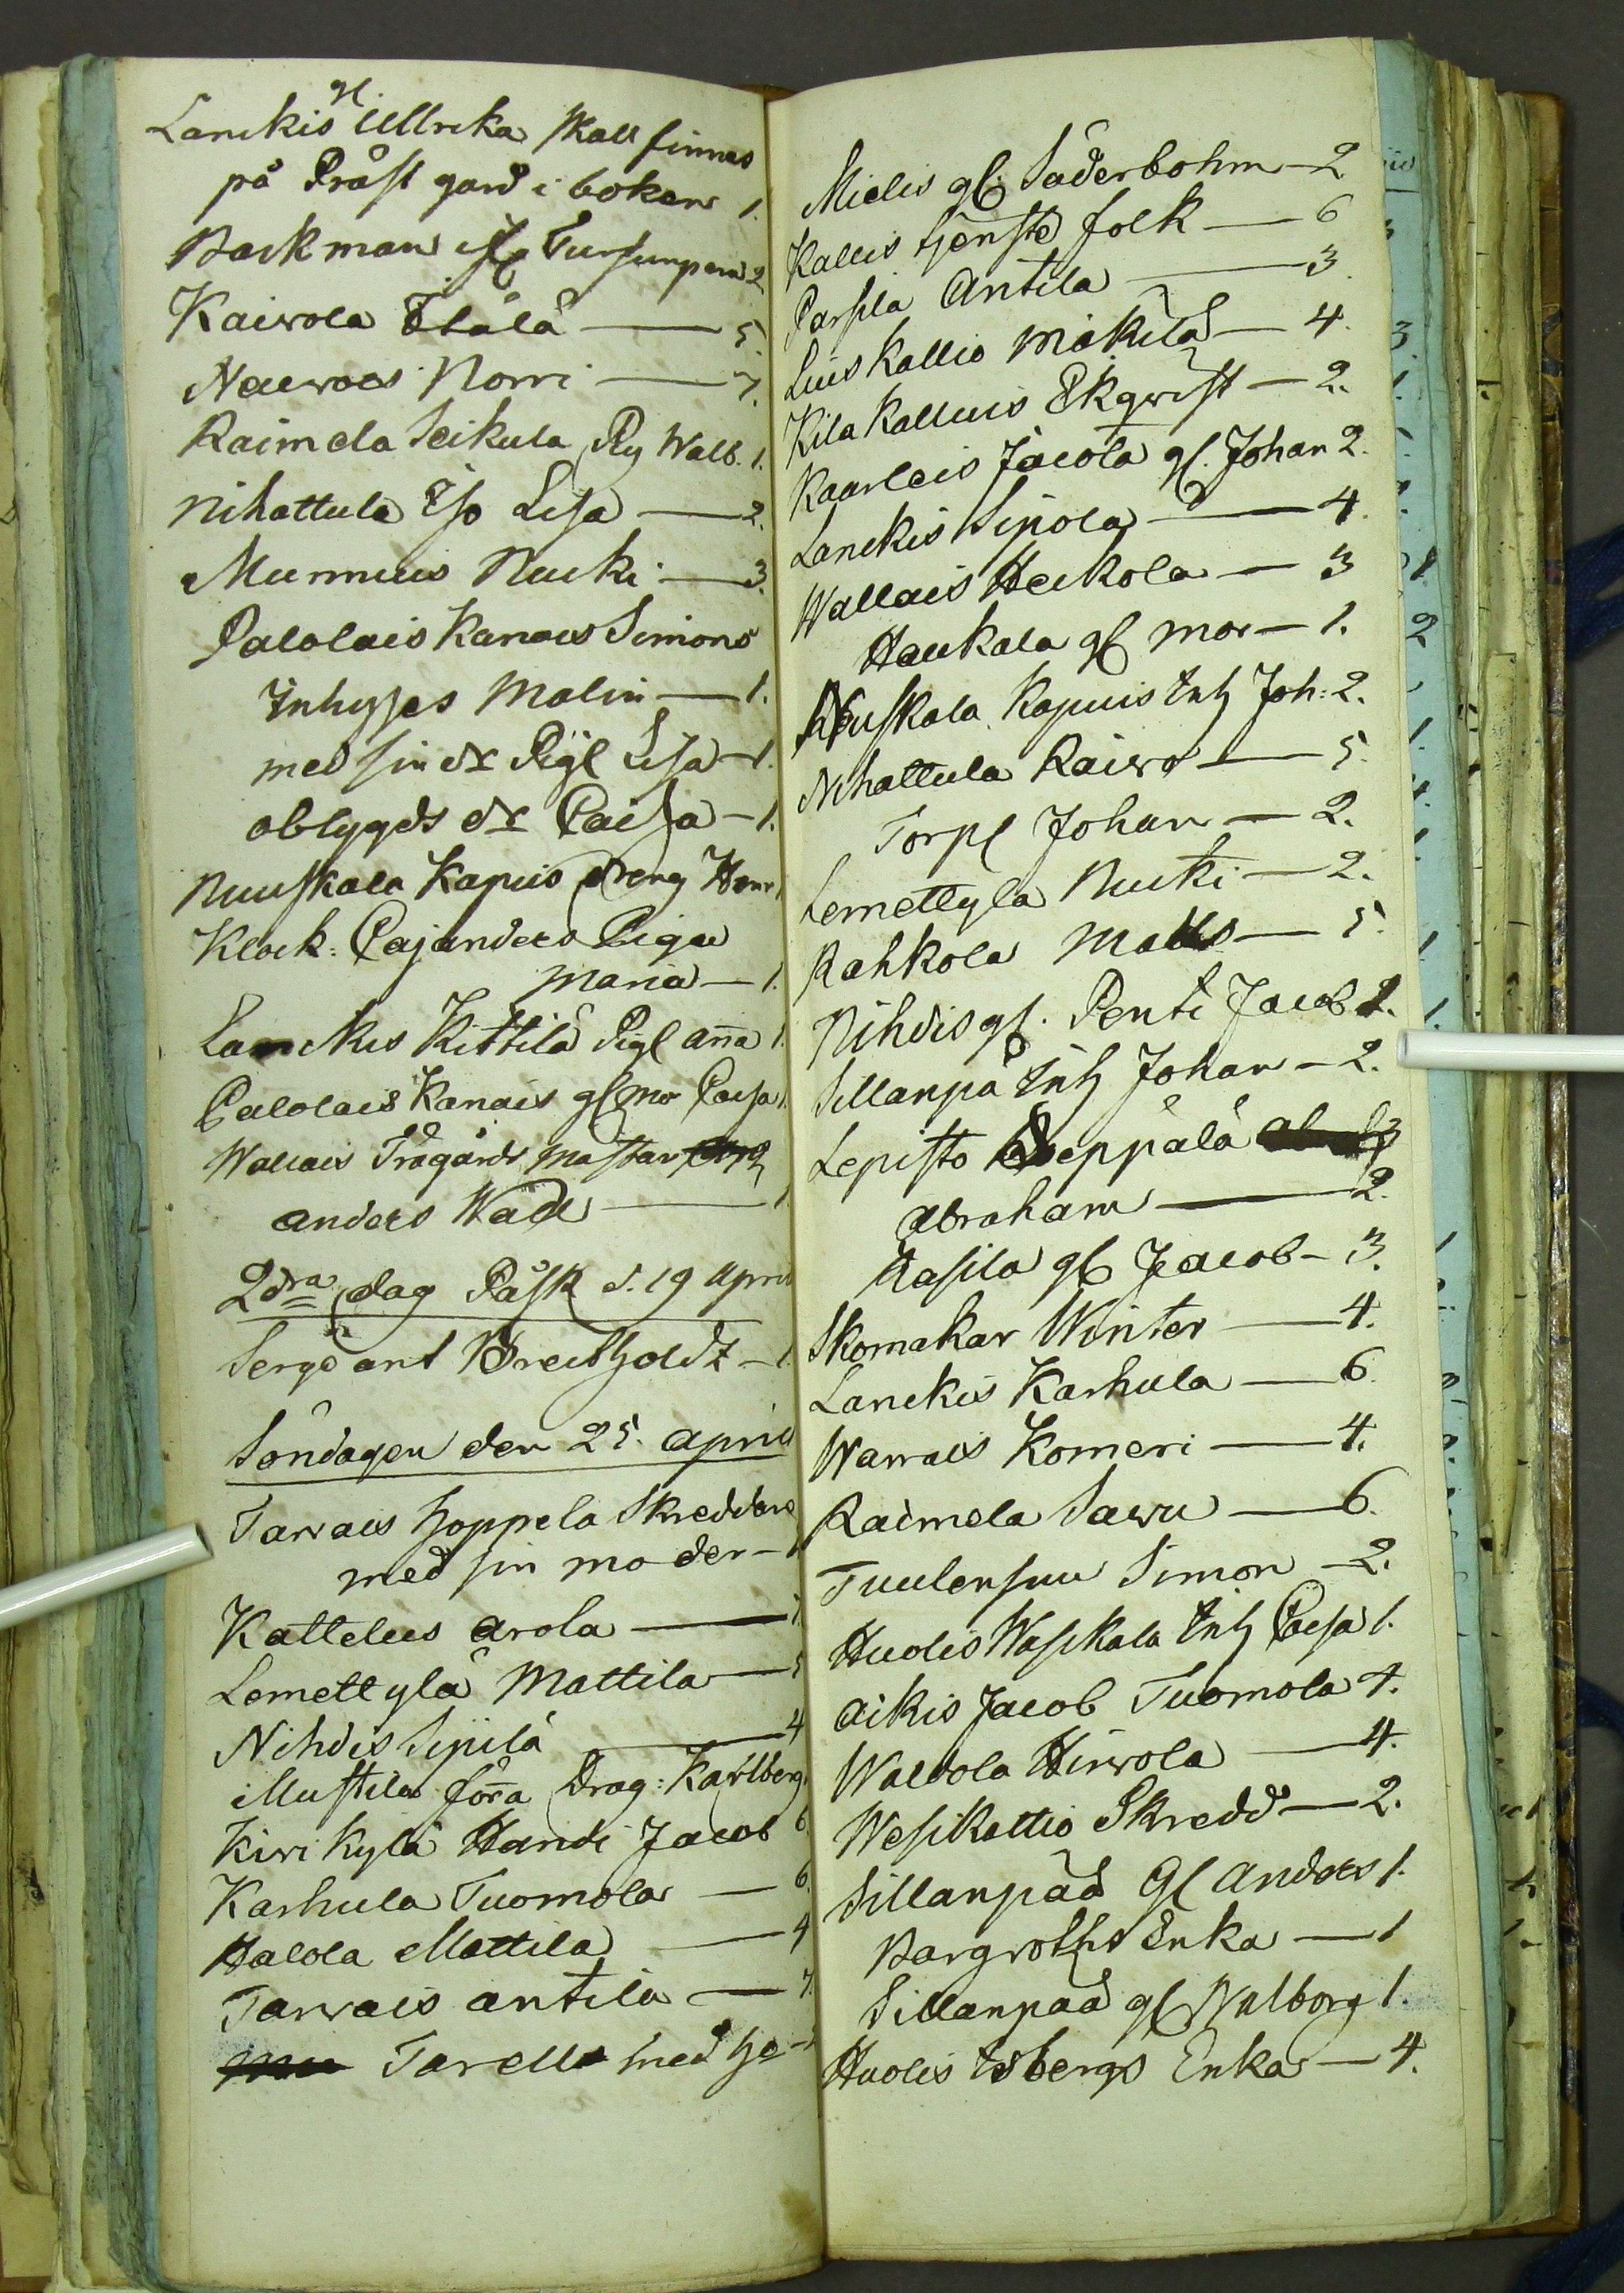 gl.
Lanckis Ullrika skall finnes
på Präst gård i boken 1.
Backman
Kaivola Ylälä — 5.
Nauvois Norri — 7.
Raimela Seikula Pig Walb. 1.
Nihattula Lisa — 2.
Mummuis Nucki — 3.
Palolais Kanais Simons
Inhyses Malin — 1.
med sin dr Pigl Lisa — 1.
oblygds dr Caisa — 1.
Nuuskala Kapuis Dreng Henr 1
Klock: Cajanders Piga
Maria — 1.
Lanckis Kittilä Pigl Aña 1.
Palolais Kanais gl mo Caisa 1.
Wallais Trägårds mästar
Anders Wade — 1
2dra dag Påsk d. 19 April
Sergeant Breitholdz — 1.
Söndagen den 25. April
Tarvais Hoppela Skreddare
med sin moder —
Kattelus Arola — 7.
Lemettylä Mattila — 5
Nihdis Sipilä — 4
Mustila förra Drag: Karlberg
Kirikylä Handi Jacob 6.
Karhula Tuomola — 6.
Halola Mattila — 4
Tarvais Antila — 7.
Tarella med
Mielis gl. Söderbohm — 2
Kallis tjenste folk — 6
Parsila Antila — 3.
Luiskallio Mäkilä — 4.
Kila Kalluis Ekqvist — 2.
Kaarleis Jacola gl. Johan 2.
Lanckis Sipola — 4.
Wallais Heikola — 3
Haukala gl mor — 1.
Nuuskala Kapuis Inh Joh: 2.
Nihattula Raivo — 5.
Torpl Johan — 2.
Lemettyla Nucki — 2.
Rahkola Matts — 5.
Nihdis gl. Penti Jacob 2.
Sillanpä Inh Johan — 2.
Lepistö Seppälä
Abraham — 2.
Hasila gl Jacob — 3.
Skomakar Winter — 4.
Lanckis Karhula — 6.
Warrais Komeri — 4.
Raimela Sawu — 6.
Tuulensuu Simon — 2.
Huolis Wasikala Inh Caisa 1.
Aikis Jacob Tuomola 4.
Waldola Hirvola — 4.
Wesikattio Skredd — 2.
Sillanpää Gl Anders 1.
Bargroths Enka — 1
Sillanpää gl Walborg 1.
Huolis Isbergs Enka — 4.